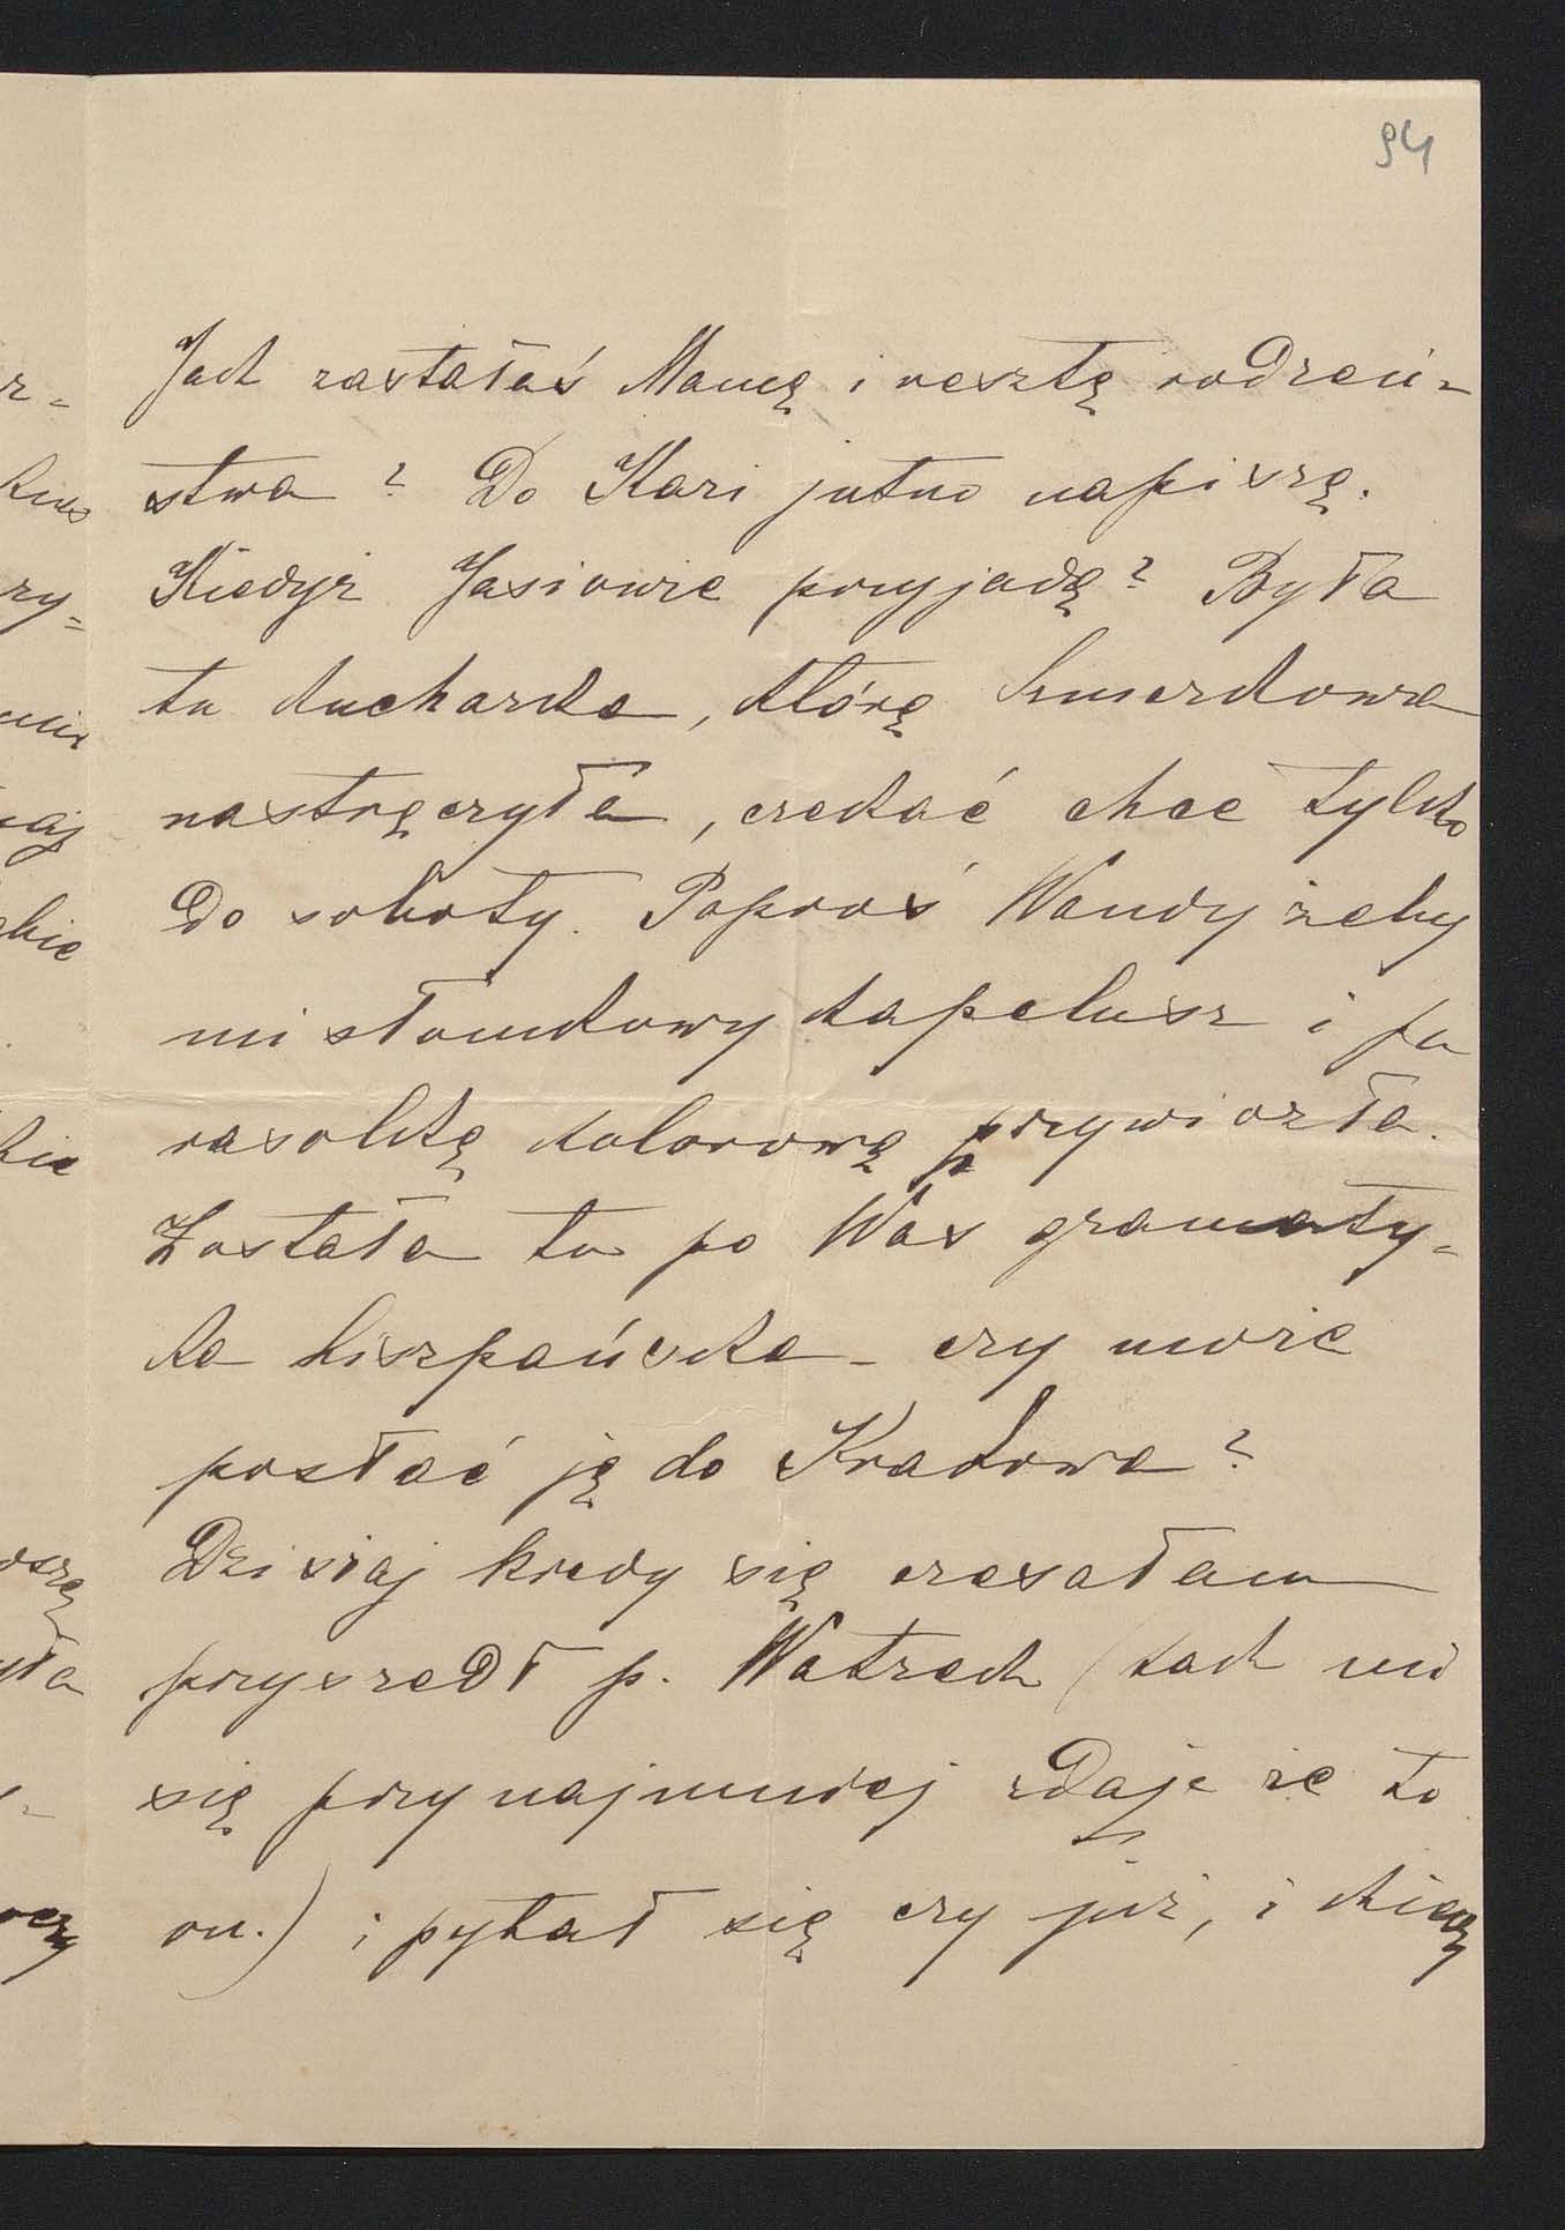 94
Jak zastałaś Mamę i resztę rodzeń-
stwa? Do Kazi jutro napiszę.
Kiedyż Jasiowie przyjadą? Była
tu kucharka, którą Szmerkowa
nastręczyła, czekać chce tylko
do soboty. Poproś Wandy żeby
mi słomkowy kapelusz i pa
rasolkę kolorową przywiozła.
Została tu po Was gramaty-
ka hiszpańska - czy może
posłać ją do Krakowa?
Dzisiaj kiedy się czesałam
przyszedł p. Watzek (tak mi
się przynajmniej zdaje że to
on.) i pytał się czy już, i kiedy